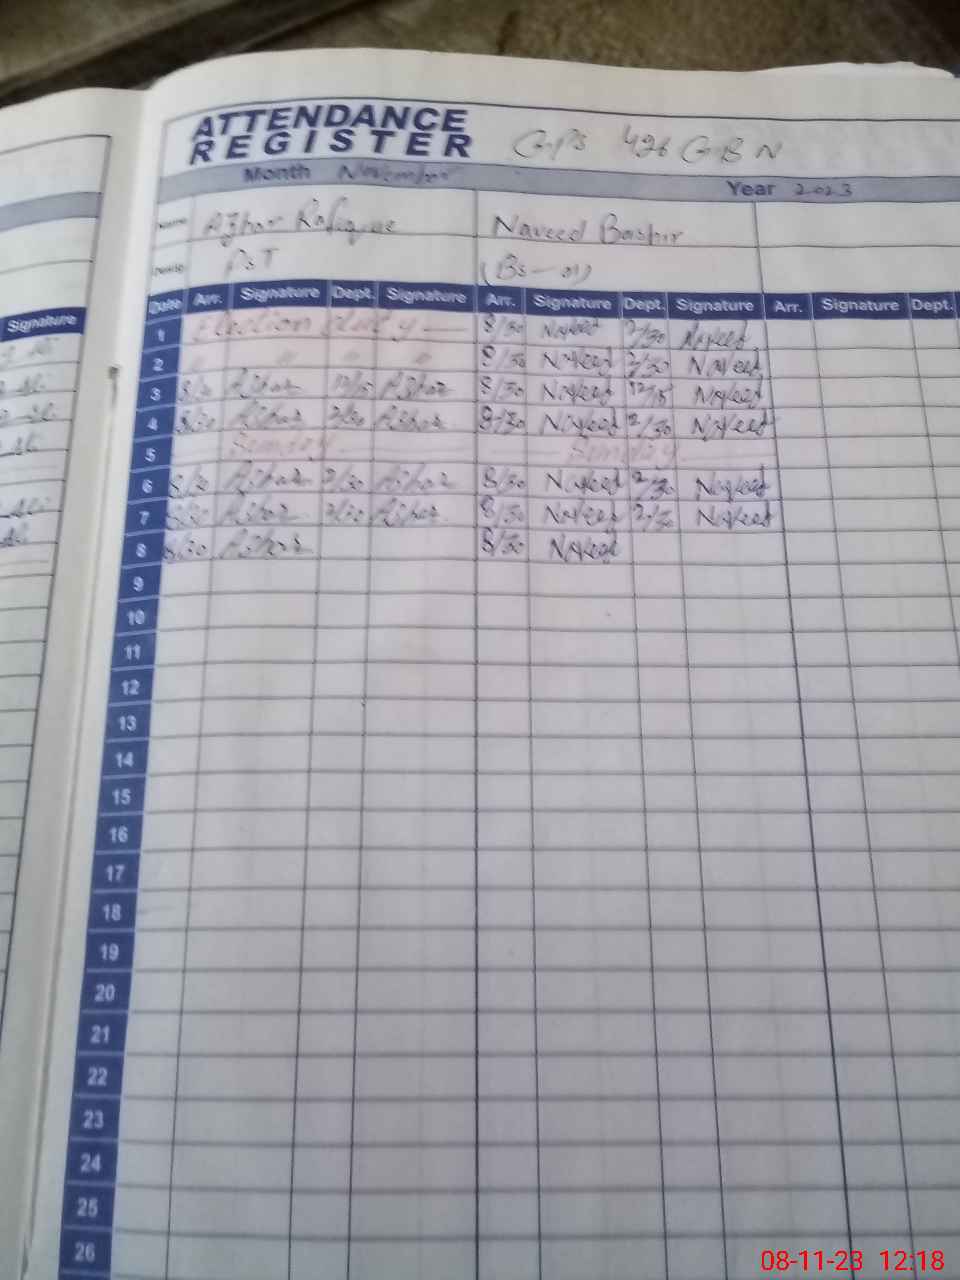 ATTENDANCE
REGISTER
GPS 426 GB N
Month November
Year 2023
Name Azhar Rafique Naveed Bashir
PST (BS-01)
Signature
Date Arr. Signature Dept. Signature Arr. Signature Dept. Signature Arr. Signature Dept.
1 Election duty 8/30 Naveed 2/30 Naveed
2 " " " " 8/30 Naveed 2/30 Naveed
3 8/30 Azhar 12/15 Azhar 8/30 Naveed 12/15 Naveed
4 8/30 Azhar 2/30 Azhar 8/30 Naveed 2/30 Naveed
5 Sunday Sunday
6 8/30 Azhar 2/30 Azhar 8/30 Naveed 2/30 Naveed
7 8/30 Azhar 2/30 Azhar 8/30 Naveed 2/30 Naveed
8 8/30 Azhar 8/30 Naveed
9
10
11
12
13
14
15
16
17
18
19
20
21
22
23
24
25
26
08-11-23 12:18